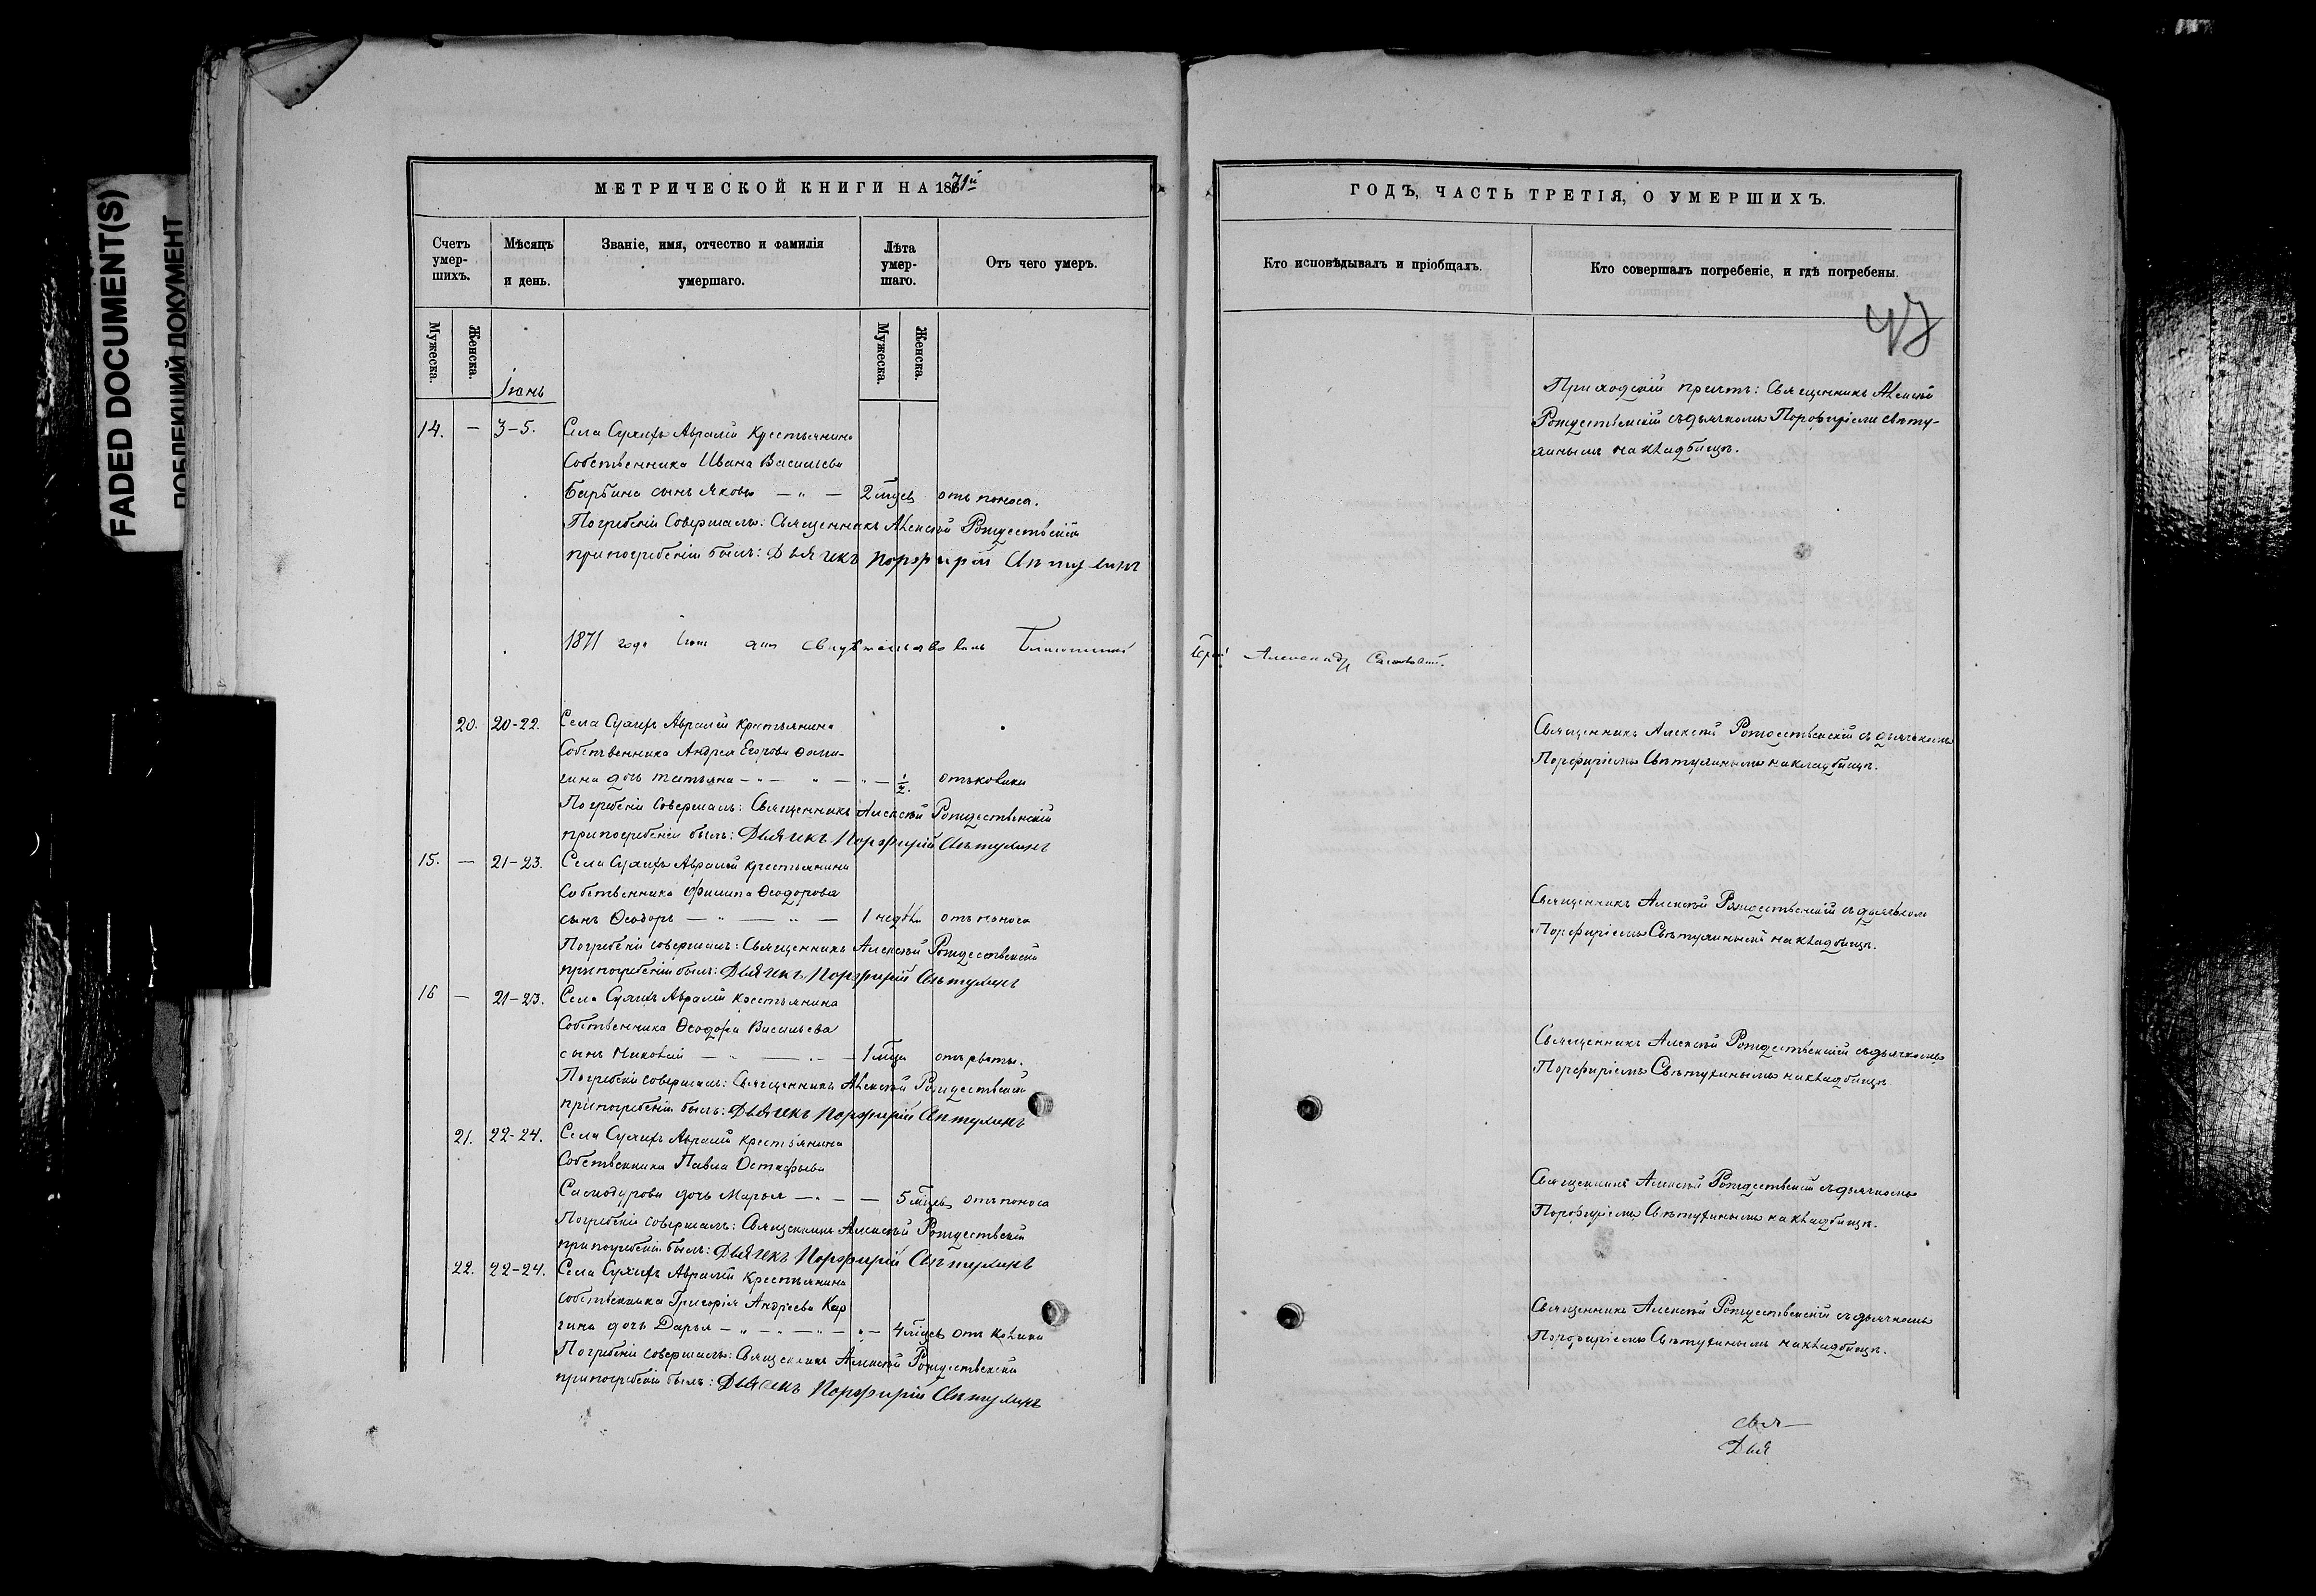 FADED DOCUMENT(S)
ПОБЛЕКШИЙ ДОКУМЕНТ
МЕТРИЧЕСКОЙ КНИГИ НА 1871й
Счетъ умер-шихъ.
Мѣсяцъ и день.
Званіе, имя, отчество и фамилія умершаго.
Лѣта умер-шаго.
Отъ чего умеръ.
Мужеска.
Женска.
Мужеска.
Женска.
Іюнь
14. — 3-5. Села Сухихъ Авралій Крестьянина
Собственника Ивана Васильева
Барбина сынъ Яковъ — „ — 2 мцев отъ поноса.
Погребеніе Совершалъ: Священникъ Алексѣй Рождественскій
при погребеніи былъ: Дьячекъ Порфирій Свѣтулинъ
1871 года дня свидѣтельствовалъ Благочинный
20. 20-22. Села Сухихъ Авралій Крестьянина
Собственника Андрея Егорова
гина дочь Татьяна — „ — „ — „ — 1/2.
Погребеніе Совершалъ: Священникъ Алексѣй Рождественскій
при погребеніи былъ: Дьячекъ Порфирій Свѣтулинъ
15. — 21-23. Села Сухихъ Авралій Крестьянина
Собственника Филипа Ѳеодорова
сынъ Ѳеодоръ — „ — „ — 1 недѣли отъ поноса
Погребеніе совершалъ: Священникъ Алексѣй Рождественскій
при погребеніи былъ: Дьячекъ Порфирій Свѣтулинъ
16 — 21-23. Села Сухихъ Авралій Крестьянина
Собственника Ѳеодора Васильева
сынъ Николай — „ — „ — 1 мца отъ рвоты.
Погребеніе совершалъ: Священникъ Алексѣй Рождественскій
при погребеніи былъ: Дьячекъ Порфирій Свѣтулинъ
21. 22-24. Села Сухихъ Авралій Крестьянина
Собственника Павла Остафьева
Самодурова дочь Марья — „ — — 5 мцев отъ поноса
Погребеніе совершалъ: Священникъ Алексѣй Рождественскій
при погребеніи былъ: Дьячекъ Порфирій Свѣтулинъ
22. 22-24. Села Сухихъ Авралій Крестьянина
Собственника Григорія Андреева Кар
гина дочь Дарья — „ — „ — „ — „ — 4 мцев отъ
Погребеніе совершалъ: Священникъ Алексѣй Рождественскій
при погребеніи былъ: Дьячекъ Порфирій Свѣтулинъ
ГОДЪ, ЧАСТЬ ТРЕТІЯ, О УМЕРШИХЪ.
Кто исповѣдывалъ и пріобщалъ.
Кто совершалъ погребеніе, и гдѣ погребены.
47
Приходскій причтъ: Священникъ Алексѣй
Рождественскій съ дьячкомъ Порфиріемъ Свѣту-
линымъ на кладбищѣ.
Іерей Александр
Священникъ Алексѣй Рождественскій съ дьячкомъ
Порфиріемъ Свѣтулинымъ на кладбищѣ.
Священникъ Алексѣй Рождественскій съ дьячком
Порфиріемъ Свѣтулинымъ на кладбищѣ.
Священникъ Алексѣй Рождественскій съ дьячкомъ
Порфиріемъ Свѣтулинымъ на кладбищѣ
Священникъ Алексѣй Рождественскій съ дьячкомъ
Порфиріемъ Свѣтулинымъ на кладбищѣ.
Священникъ Алексѣй Рождественскій съ дьячкомъ
Порфиріемъ Свѣтулинымъ на кладбищѣ.
Свя—
Дья